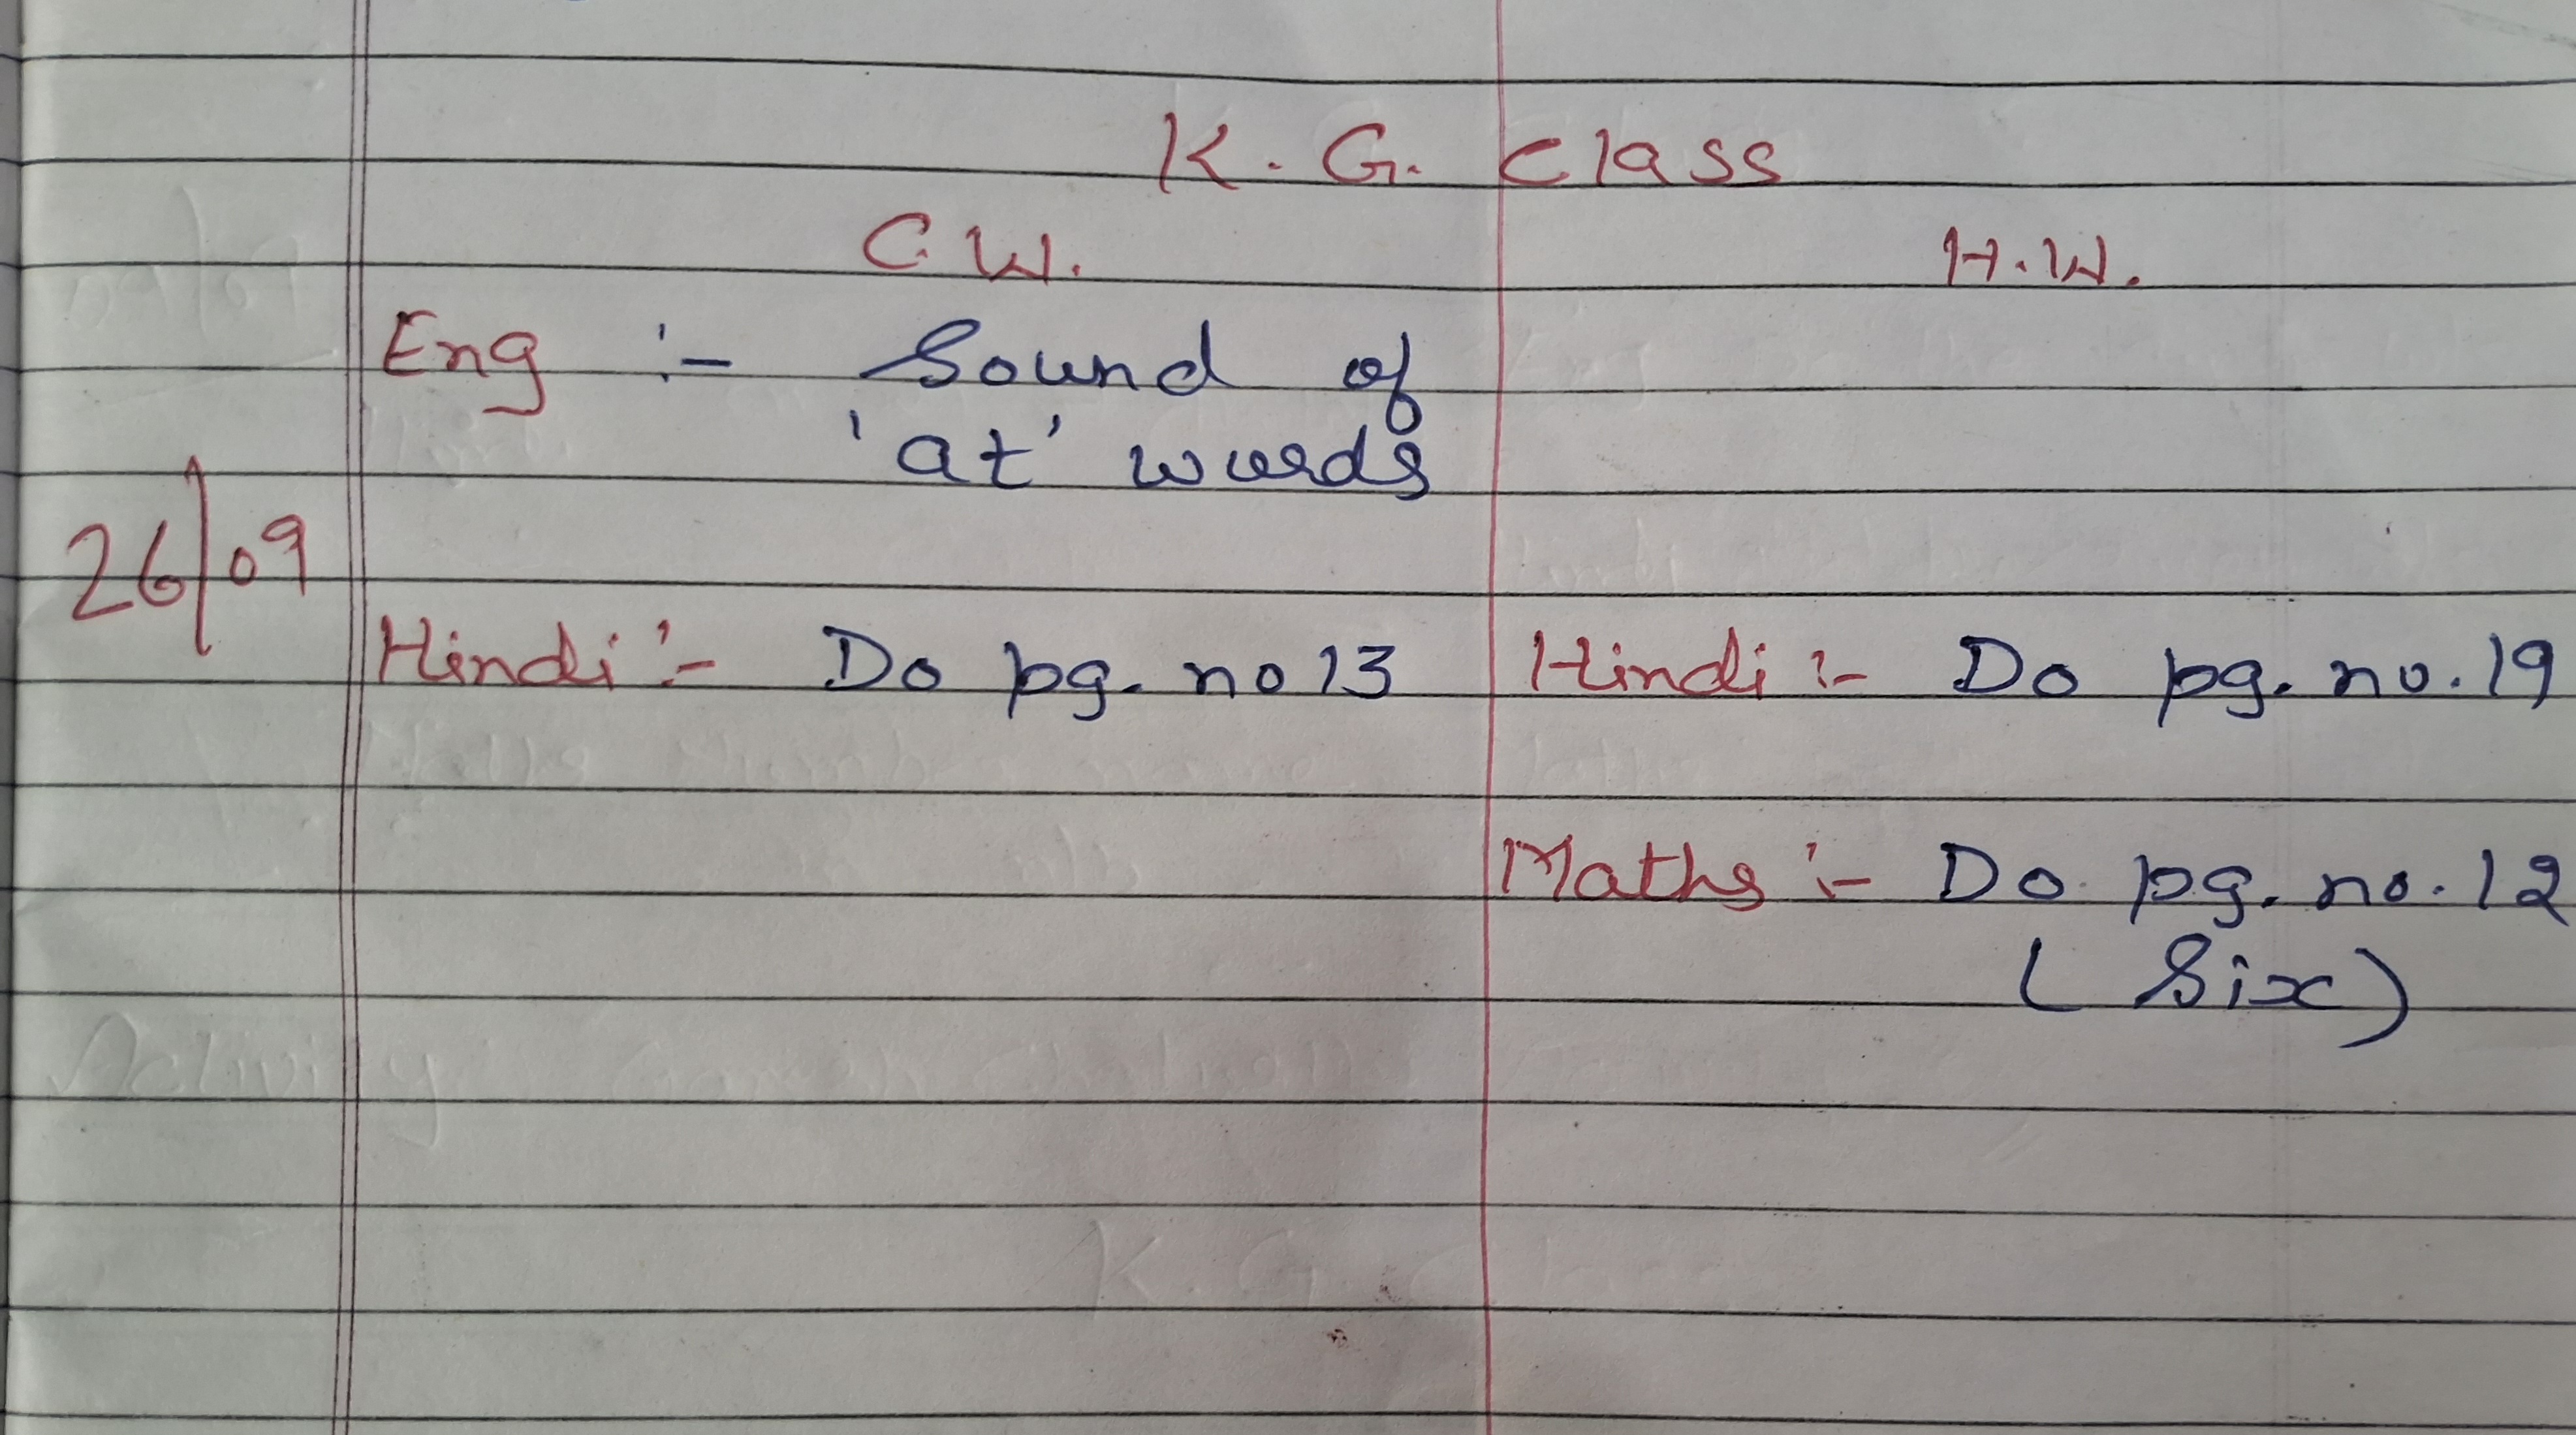 K. G. Class
C.W. H.W.
Eng :- Sound of
'at' words
26/09
Hindi :- Do pg. no 13 Hindi :- Do pg. no. 19
Maths :- Do pg. no. 12
(Six)